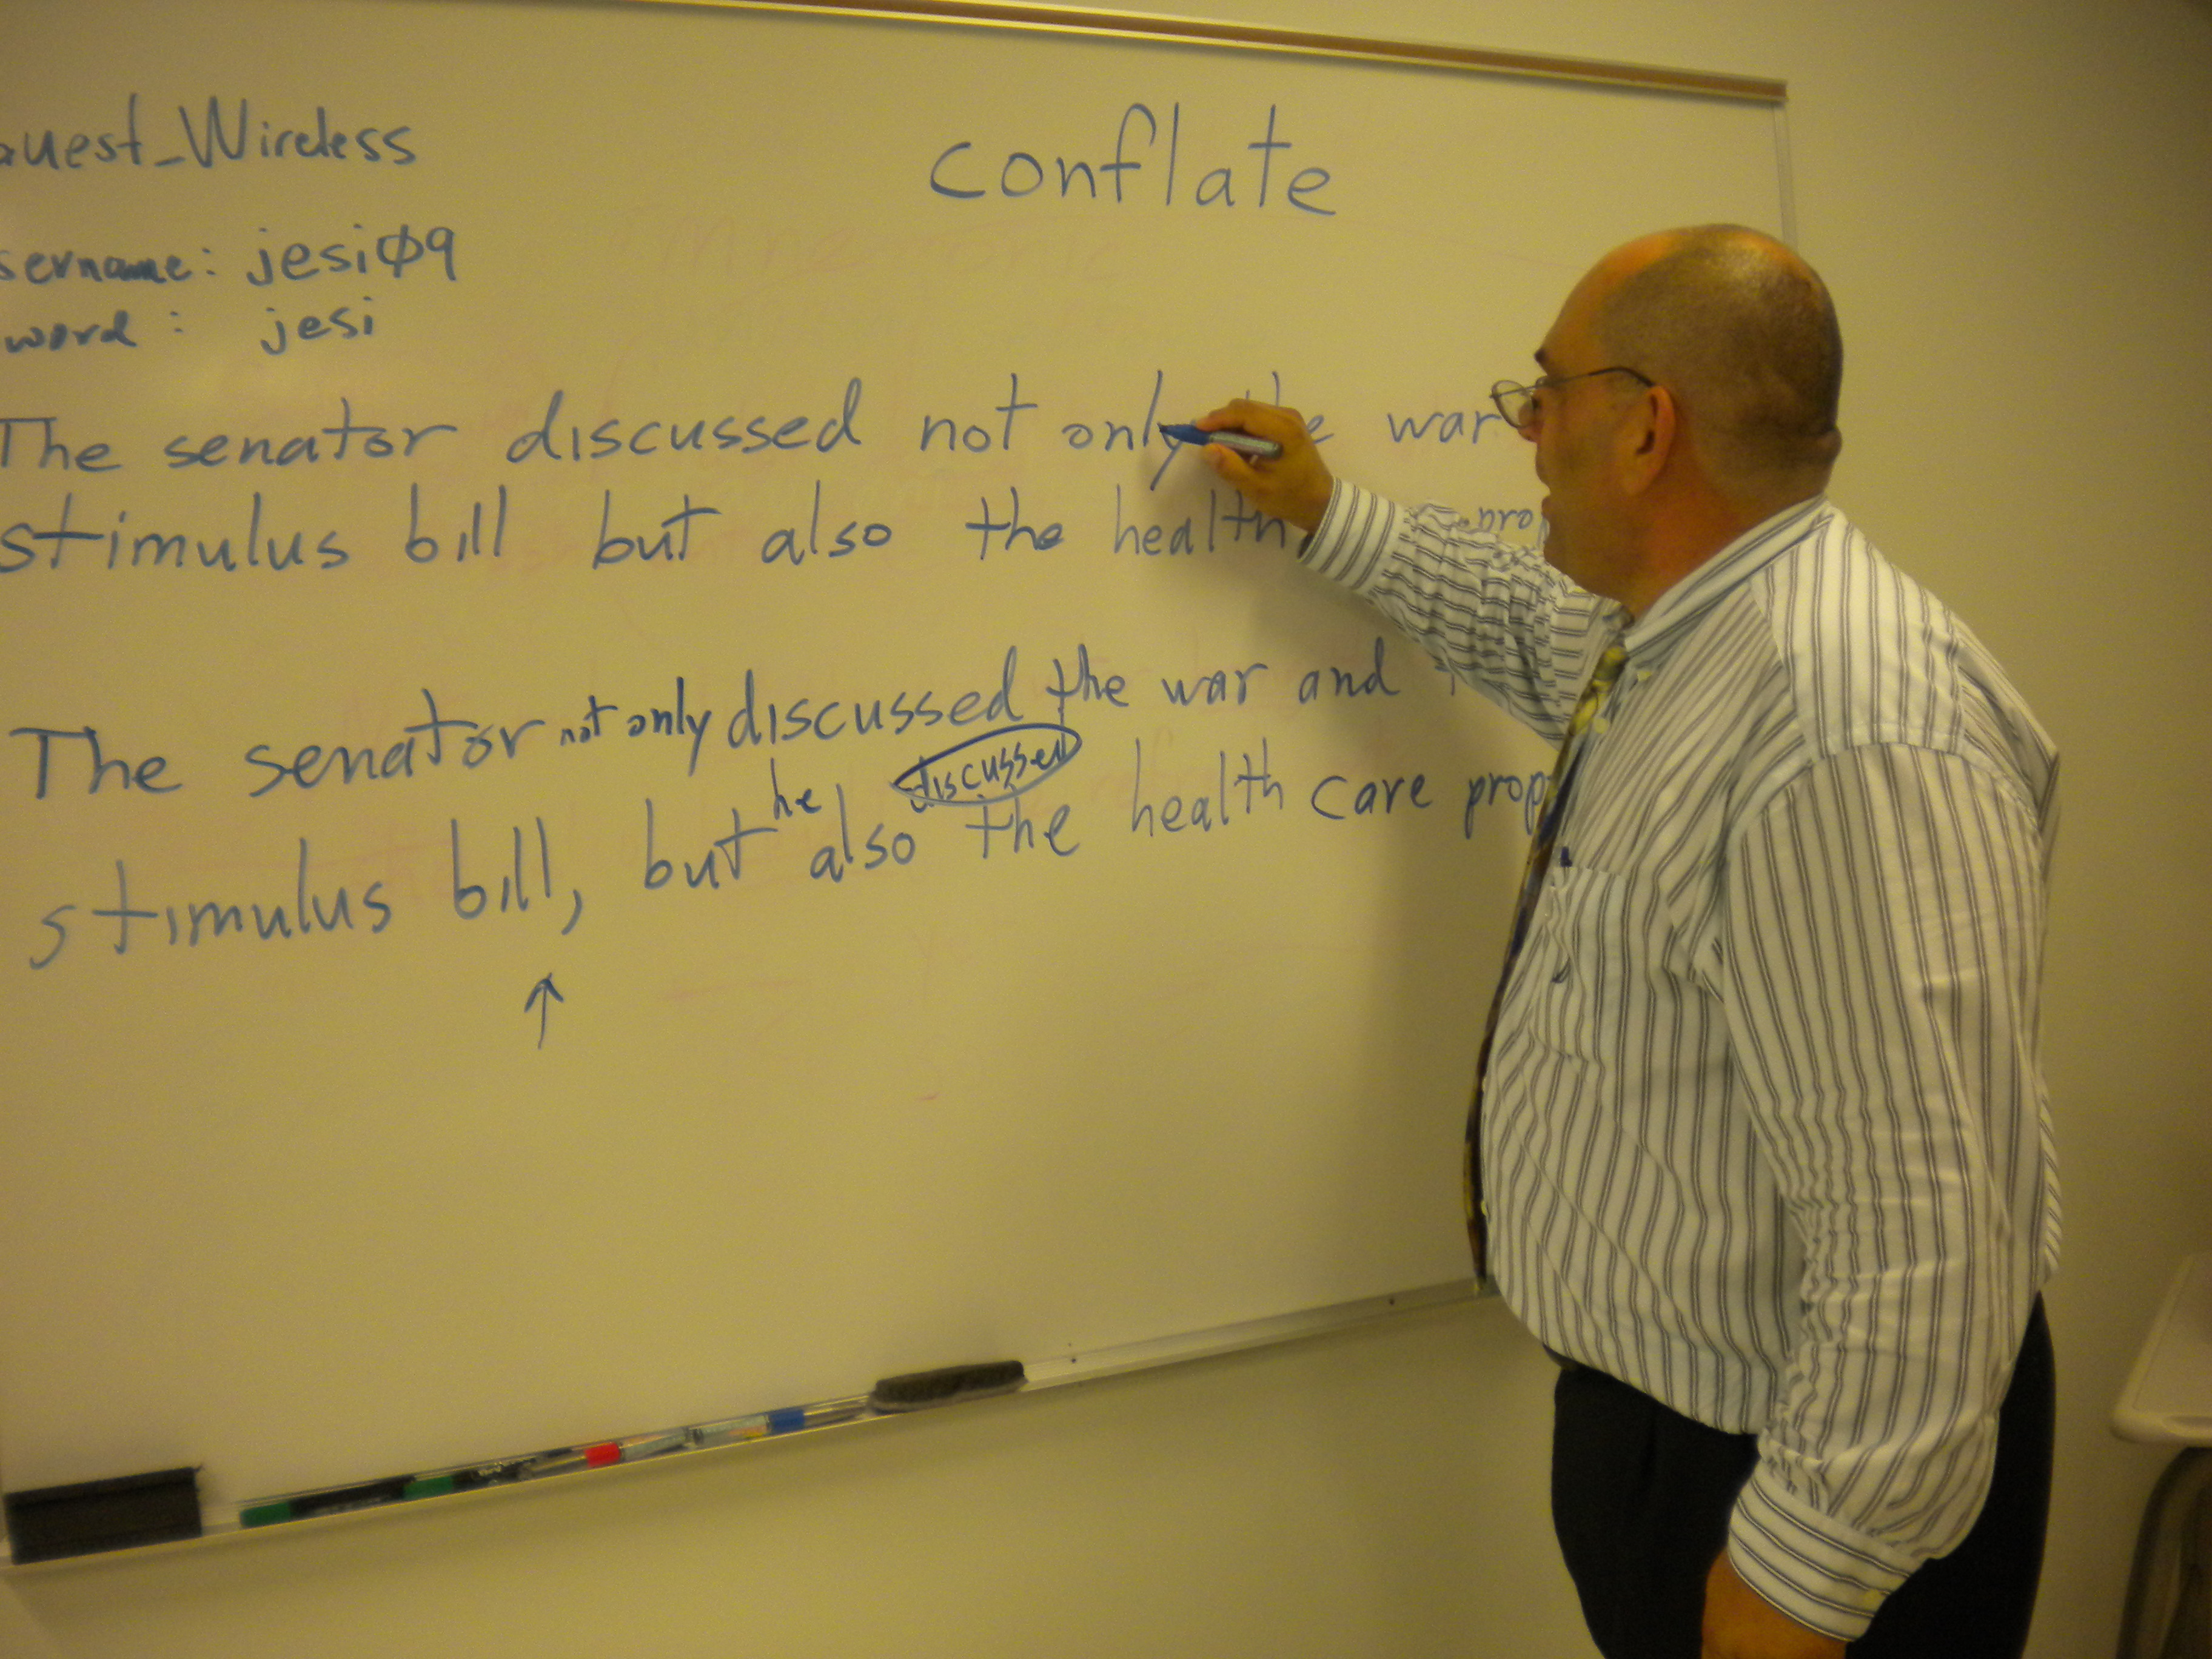 uest_Wireless
conflate
sername: jesi09
word: jesi
The senator discussed not only the war
stimulus bill but also the health
The senator not only discussed the war and
stimulus bill, but he also discussed the health care prop